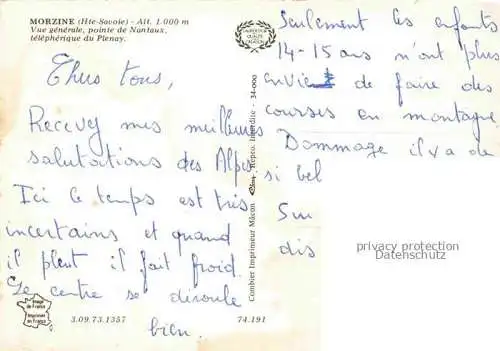 MORZINE (Hte-Savoie) - Alt. 1.000 m
Vue générale, pointe de Nantaux,
téléphérique du Pleney.
Chers tous,
Recevez mes meilleures
salutations des Alpes.
Ici le temps est très
incertains et quand
il pleut il fait froid.
Le centre se déroule
bien.
Image de France
Imprimée en France
3.09.73.1357
74.191
Combier Imprimeur Mâcon
Repro. Interdite - 34-000
Seulement les enfants
14-15 ans n'ont plus
envie de faire des
courses en montagne
Dommage il y a de
si bel
Sur
dis
privacy protection
Datenschutz